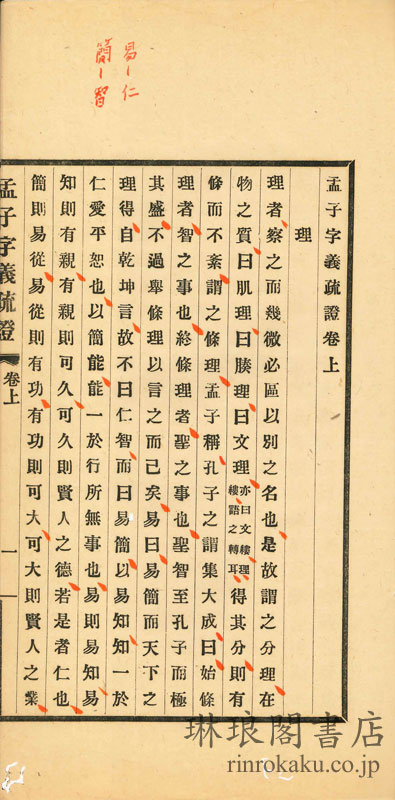 易-仁
簡-智
孟子字義疏證卷上
理
理者察之而幾微必區以別之名也是故謂之分理在
物之質曰肌理曰腠理曰文理亦曰文縷理縷語之轉耳得其分則有
條而不紊謂之條理孟子稱孔子之謂集大成曰始條
理者智之事也終條理者聖之事也聖智至孔子而極
其盛不過舉條理以言之而已矣易曰易簡而天下之
理得自乾坤言故不曰仁智而曰易簡以易知知一於
仁愛平恕也以簡能能一於行所無事也易則易知易
知則有親有親則可久可久則賢人之德若是者仁也
簡則易從易從則有功有功則可大可大則賢人之業
孟子字義疏證
卷上
一
琳琅閣書店
rinrokaku.co.jp